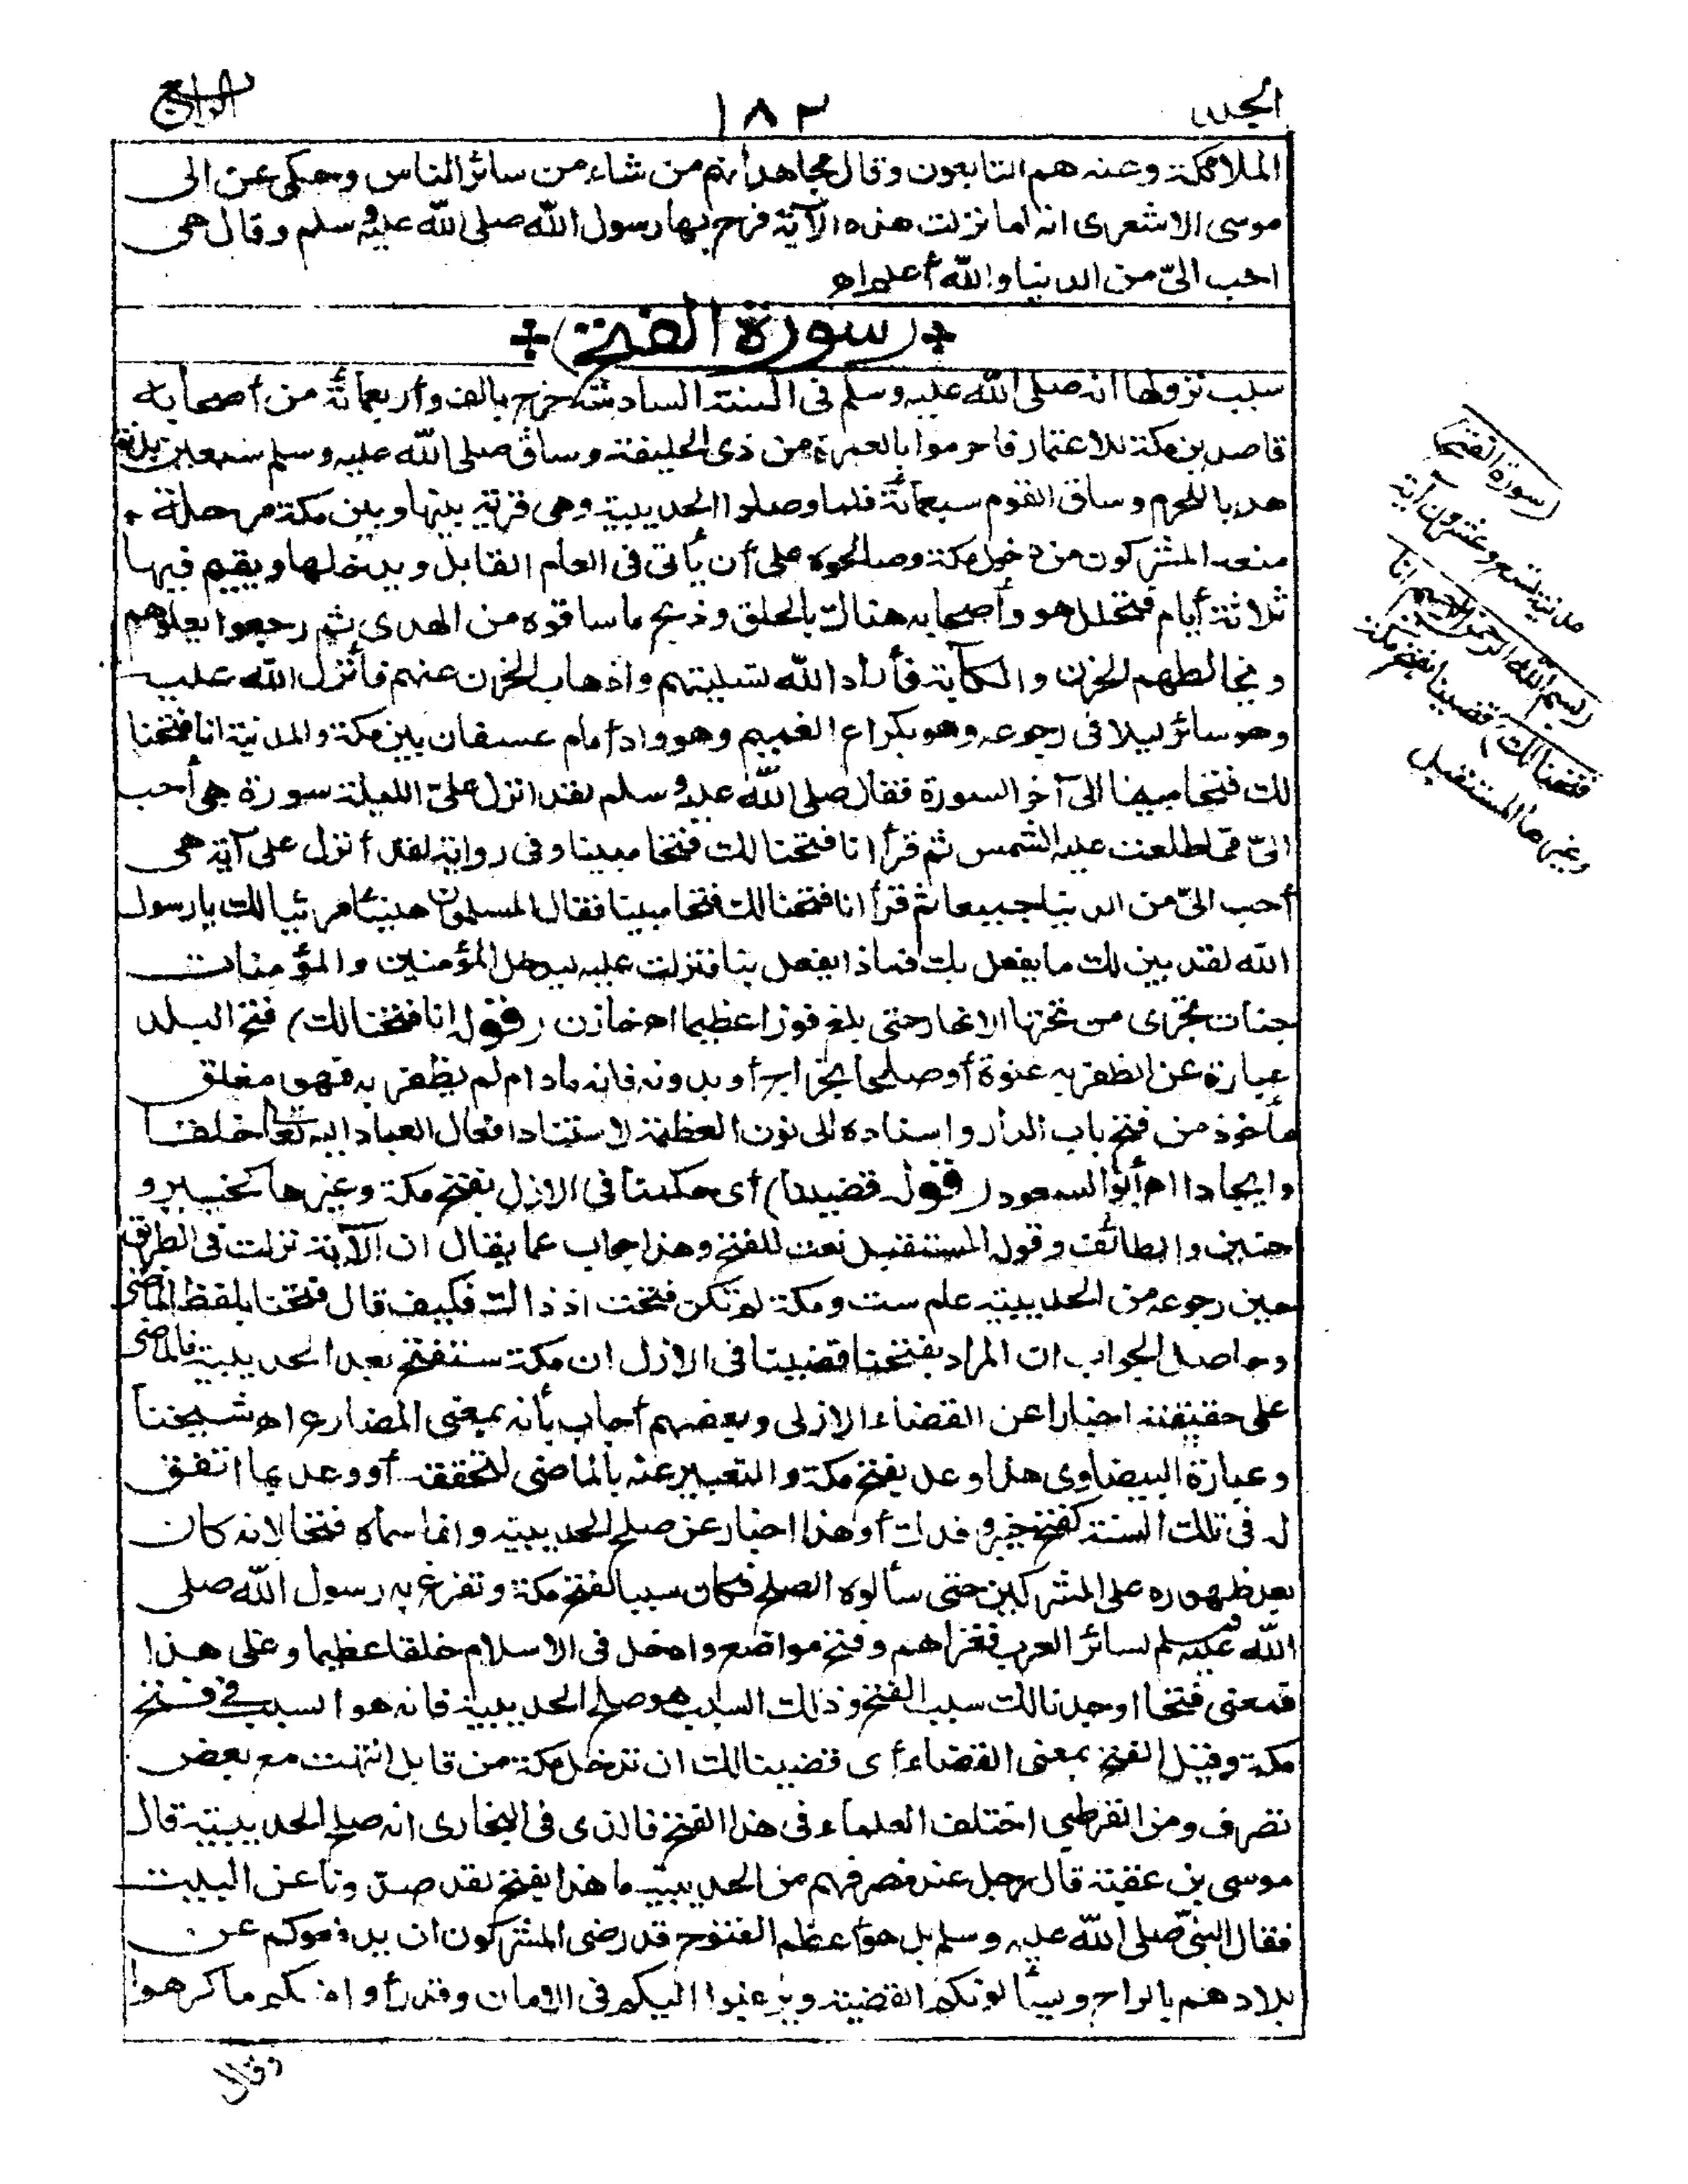 الجلد
١٨٢
الرابع
الملائكة وعنه هم التابعون وقال مجاهد أنهم من شاء من سائر الناس وحكى عن ابى
موسى الاشعرى انه لما نزلت هذه الآية فرح بها رسول الله صلى الله عليه وسلم وقال هى
احب الىّ من الدنيا والله أعلم اه
(سورة الفتح)
سبب نزولها انه صلى الله عليه وسلم فى السنة السادسة خرج بالف وأربعمائة من أصحابه
قاصدين مكة للاعتمار فاحرموا بالعمرة من ذى الحليفة وساق صلى الله عليه وسلم سبعين بدنة
هديا للحرم وساق القوم سبعمائة فلما وصلوا الحديبية وهى قرية بينها وبين مكة مرحلة
منعه المشركون من دخول مكة وصالحوه على أن يأتى فى العام القابل ويدخلها ويقيم فيها
ثلاثة أيام فتحلل هو وأصحابه هناك بالحلق وذبح ما ساقوه من الهدى ثم رجعوا يعلوهم
ويخالطهم الحزن والكآبة فأراد الله تسليتهم واذهاب الحزن عنهم فأنزل الله عليه
وهو سائر ليلا فى رجوعه وهو بكراع الغميم وهو واد أمام عسفان بين مكة والمدينة انا فتحنا
لك فتحا مبينا الى آخر السورة فقال صلى الله عليه وسلم لقد انزل علىّ الليلة سورة هى أحب
الىّ مما طلعت عليه الشمس ثم قرأ انا فتحنا لك فتحا مبينا وفى رواية لقد أنزل على آية هى
أحب الىّ من الدنيا جميعا ثم قرأ انا فتحنا لك فتحا مبينا فقال المسلمون هنيئا مريئا لك يا رسول
الله لقد بين لك ما يفعل بك فماذا يفعل بنا فنزلت عليه ليدخل المؤمنين والمؤمنات
جنات تجرى من تحتها الانهار حتى بلغ فوزا عظيما اه خازن (قوله انا فتحنا لك) فتح البلد
عبارة عن الظفر به عنوة أو صلحا بخراب أو بدونه فانه ما دام لم يظفر به فهو مغلق
مأخوذ من فتح باب الدار واسناده الى نون العظمة لاستناد افعال العباد اليه تعالى خلقا
وايجادا اه أبو السعود (قوله قضينا) أى حكمنا فى الازل بفتح مكة وغيرها كخيبر و
حنين والطائف وقوله المستقبل نعت للفتح وهذا جواب عما يقال ان الآية نزلت فى الطريق
حين رجوعه من الحديبية عام ست ومكة لم تكن فتحت اذ ذاك فكيف قال فتحنا بلفظ الماضى
وحاصل الجواب ان المراد بفتحنا قضينا فى الازل ان مكة ستفتح بعد الحديبية فالماضى
على حقيقته اخبارا عن القضاء الازلى وبعضهم أجاب بأنه بمعنى المضارع اه شيخنا
وعبارة البيضاوى هذا وعد بفتح مكة والتعبير عنه بالماضى لتحققه أو وعد بما اتفق
له فى تلك السنة كفتح خيبر وفدك أو هذا اخبار عن صلح الحديبية وانما سماه فتحا لانه كان
بعد ظهوره على المشركين حتى سألوه الصلح فكان سببا لفتح مكة وتفرغ به رسول الله صلى
الله عليه وسلم لسائر العرب فغزاهم وفتح مواضع وادخل فى الاسلام خلقا عظيما وعلى هذا
فمعنى فتحنا اوجدنا لك سبب الفتح وذلك السبب هو صلح الحديبية فانه هو السبب فى فتح
مكة وقيل الفتح بمعنى القضاء أى قضينا لك ان تدخل مكة من قابل انتهت مع بعض
تصرف ومن القرطبى اختلف العلماء فى هذا الفتح فالذى فى البخارى انه صلح الحديبية قال
موسى بن عقبة قال رجل عند منصرفهم من الحديبية ما هذا بفتح لقد صدّونا عن البيت
فقال النبىّ صلى الله عليه وسلم بل هو أعظم الفتوح قد رضى المشركون ان يدفعوكم عن
بلادهم بالراح ويسألونكم القضية ويرغبوا اليكم فى الامان وقد رأوا منكم ما كرهوا
وقال
(سورة الفتح)
مدنية تسع وعشرون آية
(بسم الله الرحمن الرحيم انا
فتحنا لك) قضينا بفتح مكة
وغيرها المستقبل